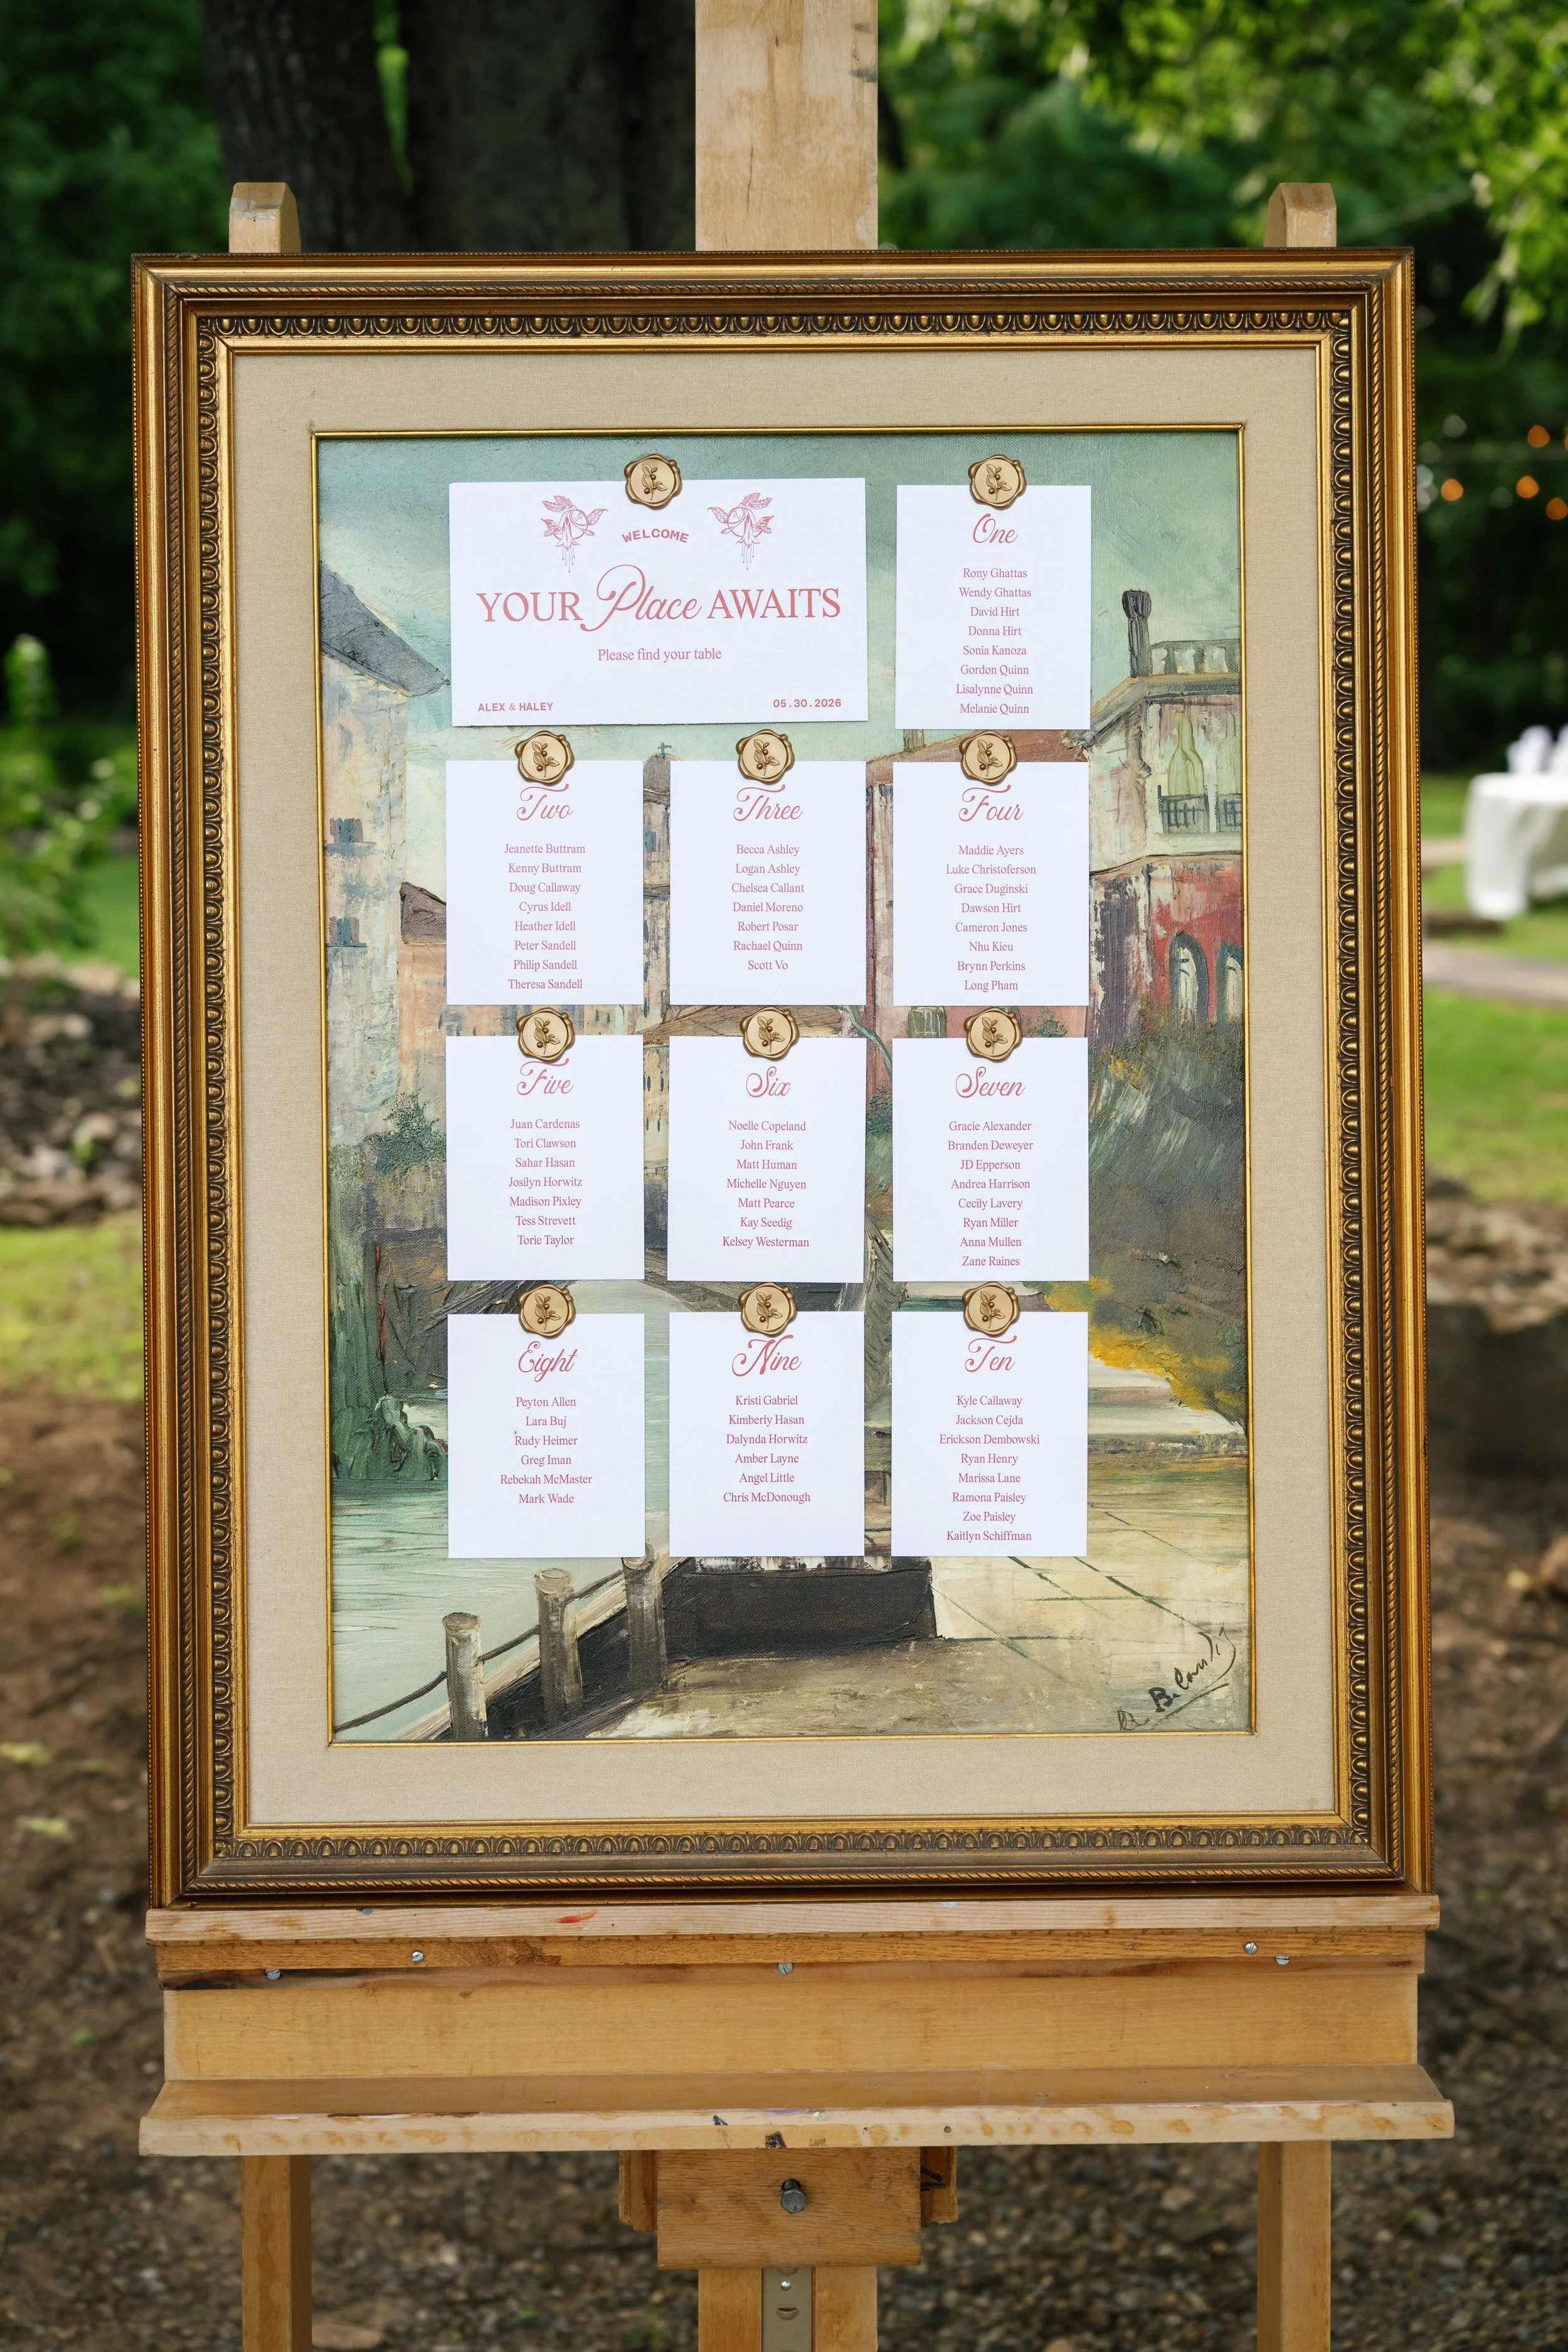 WELCOME
YOUR Place AWAITS
Please find your table
ALEX & HALEY
05.30.2026
One
Rony Ghattas
Wendy Ghattas
David Hirt
Donna Hirt
Sonia Kanoza
Gordon Quinn
Lisalynne Quinn
Melanie Quinn
Two
Jeanette Buttram
Kenny Buttram
Doug Callaway
Cyrus Idell
Heather Idell
Peter Sandell
Philip Sandell
Theresa Sandell
Three
Becca Ashley
Logan Ashley
Chelsea Callant
Daniel Moreno
Robert Posar
Rachael Quinn
Scott Vo
Four
Maddie Ayers
Luke Christoferson
Grace Duginski
Dawson Hirt
Cameron Jones
Nhu Kieu
Brynn Perkins
Long Pham
Five
Juan Cardenas
Tori Clawson
Sahar Hasan
Josilyn Horwitz
Madison Pixley
Tess Strevett
Torie Taylor
Six
Noelle Copeland
John Frank
Matt Human
Michelle Nguyen
Matt Pearce
Kay Seedig
Kelsey Westerman
Seven
Gracie Alexander
Branden Deweyer
JD Epperson
Andrea Harrison
Cecily Lavery
Ryan Miller
Anna Mullen
Zane Raines
Eight
Peyton Allen
Lara Buj
Rudy Heimer
Greg Iman
Rebekah McMaster
Mark Wade
Nine
Kristi Gabriel
Kimberly Hasan
Dalynda Horwitz
Amber Layne
Angel Little
Chris McDonough
Ten
Kyle Callaway
Jackson Cejda
Erickson Dembowski
Ryan Henry
Marissa Lane
Ramona Paisley
Zoe Paisley
Kaitlyn Schiffman